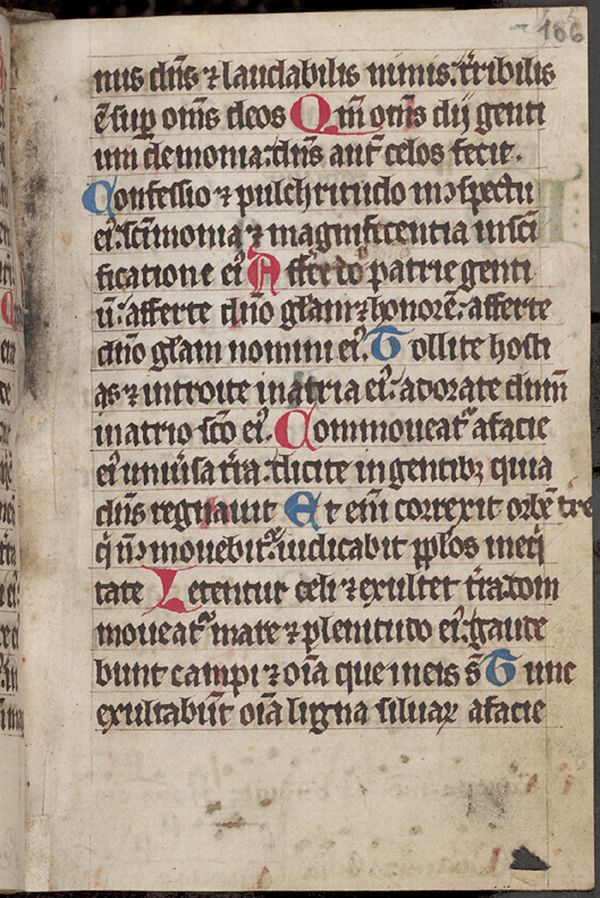 106
nus dn̄s ⁊ laudabilis nimis. t͛ribilis
ē suꝑ om̄s deos Qm̄ om̄s dij genti
um demonia: dn̄s aut̄ celos fecit.
Confessio ⁊ pulchritudo in ↄspectu
eiꝰ: sc̄imonia ⁊ magnificentia in sc̄i
ficatione eiꝰ Afferte dn̄o patrie genti
ū: afferte dn̄o gl̄am ⁊ honorē: afferte
dn̄o gl̄am nomini eiꝰ. Tollite hosti
as ⁊ introite in atria eiꝰ: adorate dnm̄
in atrio sc̄o eiꝰ. Commoueat᷑ a facie
eiꝰ uniu͛sa t͛ra: dicite in gentibꝫ quia
dn̄s regnauit Et em̄ correxit orbē tre
q̄ nō mouebit᷑: iudicabit pp̄los in eq̄
tate Letentur celi ⁊ exultet t͛ra: com
moueat᷑ mare ⁊ plenitudo eiꝰ: gaude
bunt campi ⁊ oīa que in eis s̄t Tunc
exultabūt oīa ligna siluaꝝ a facie